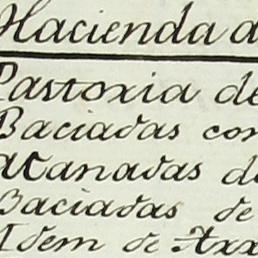 Hacienda d
Pastoxia de
Baciadas con
acanadas d
Baciadas de
Idem de Axx